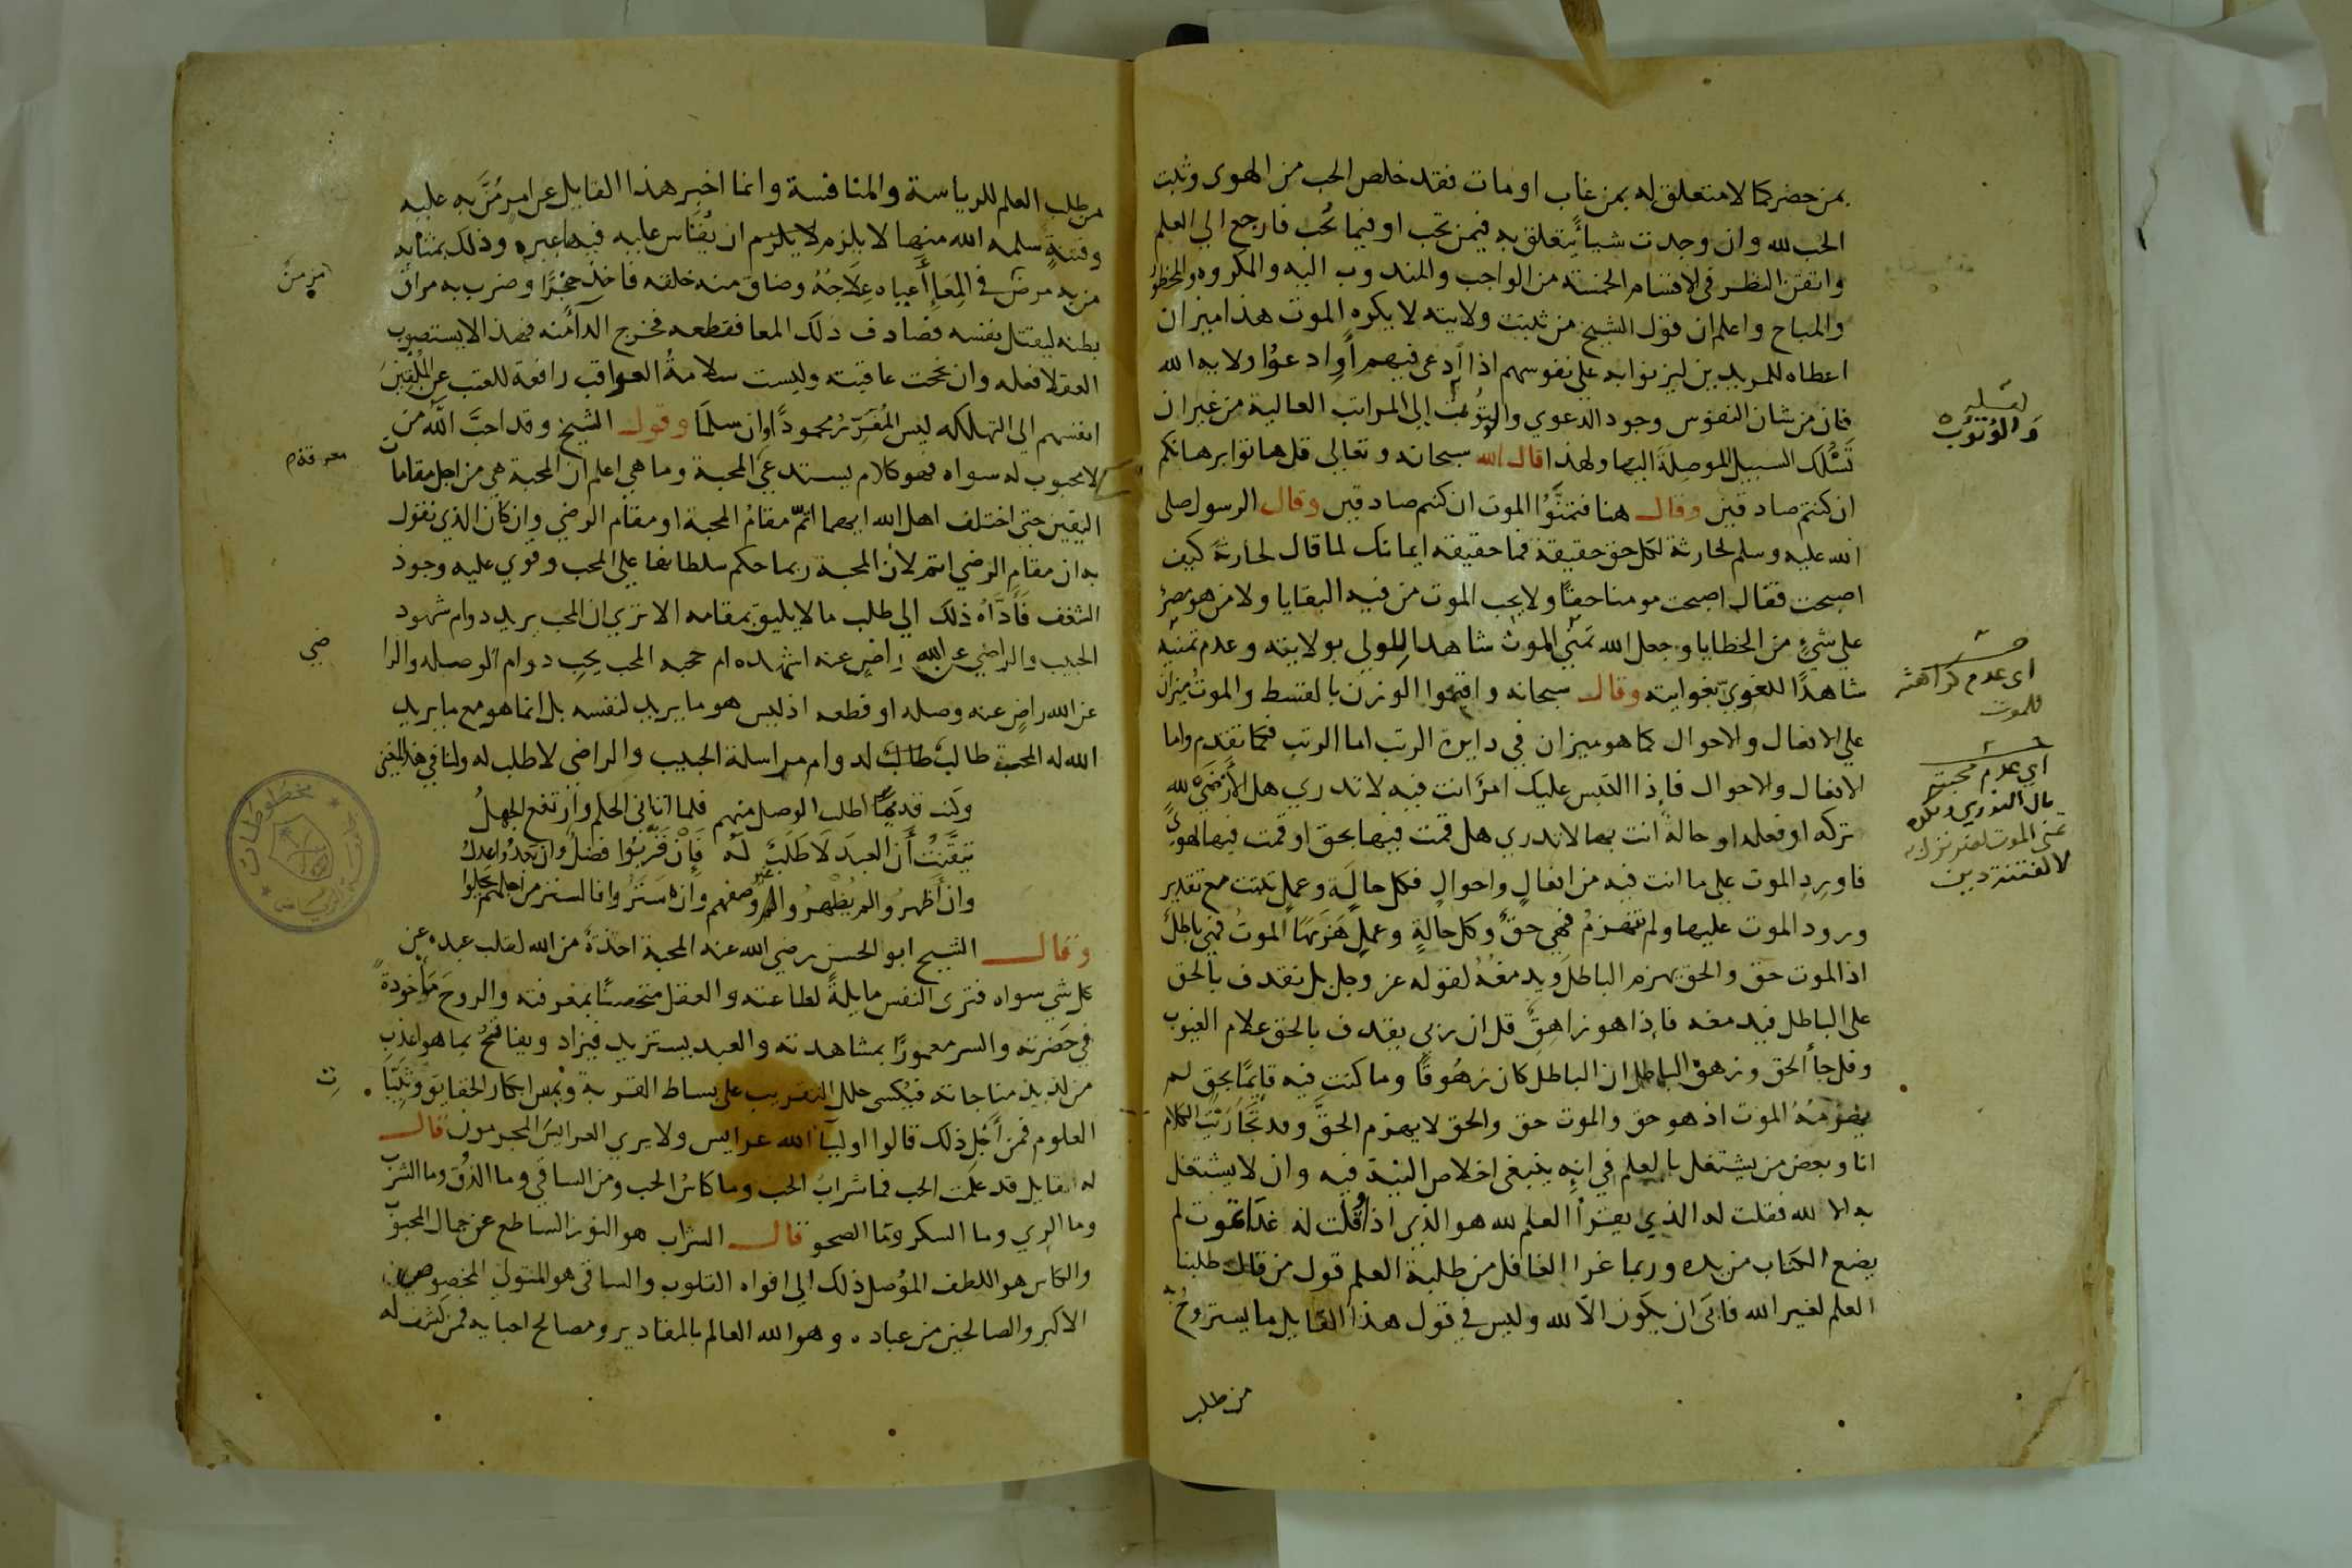 بمن حضر كما لا متعلق له بمن غاب او مات فقد خلص الحب من الهوى وثبت
الحب لله وان وجدت شيأ يتعلق به فيمن تحب او فيما تحب فارجع الي العلم
واتقن النظر في الاقسام الخمسة من الواجب والمندوب اليه والمكروه والمحظور
والمباح واعلم ان قول الشيخ من ثبتت ولايته لا يكره الموت هذا ميزان
اعطاه للمريدين ليزنوا به علي نفوسهم اذا ادعى فيهم أو ادعوا ولاية الله
فان من شان النفوس وجود الدعوي والتوثب إلى المراتب العالية من غير ان
تسلك السبيل الموصلة اليها ولهذا قال الله سبحانه وتعالى قل هاتوا برهانكم
ان كنتم صادقين وقال هنا فتمنوا الموت ان كنتم صادقين وقال الرسول صلى
الله عليه وسلم لحارثة لكل حق حقيقة فما حقيقة ايمانك لما قال لحارثة كيف
اصبحت فقال اصبحت مومنا حقا ولا يحب الموت من فيه البقايا ولا من هو مصر
علي شيء من الخطايا وجعل الله تمني الموت شاهدا للولي بولايته وعدم تمنيه
شاهدًا للغوي بغوايته وقال سبحانه واقيموا الوزن بالقسط والموت ميزان
علي الافعال والاحوال كما هو ميزان في دايرة الرتب اما الرتب فكما تقدم واما
الافعال والاحوال فإذا التبس عليك امرانت فيه لا تدري هل الأرضى لله
تركه او فعله او حالة انت بها لا تدري هل قمت فيها بحق او قمت فيها لهوي
فاورد الموت علي ما انت فيه من افعال واحوال فكل حالة وعمل تثبت مع تقدير
ورود الموت عليها ولم تنهزم فهي حق وكل حالة وعمل هزمها الموت فهي باطل
اذ الموت حق والحق يهزم الباطل ويدمغه لقوله عز وجل بل نقذف بالحق
على الباطل فيدمغه فإذا هو زاهق قل ان ربي يقذف بالحق علام الغيوب
وقل جأ الحق وزهق الباطل ان الباطل كان زهوقا وما كنت فيه قايمًا بحق لم
يهزمه الموت اذ هو حق والموت حق والحق لا يهزم الحق وقد تجاريت الكلام
انا وبعض من يشتغل بالعلم في انه ينبغي اخلاص النية فيه وان لا يشتغل
به الا لله فقلت له الذي يقرأ العلم لله هو الذي اذا قلت له غدا تموت لم
يضع الكتاب من يده وربما غرا الغافل من طلبة العلم قول من قال طلبنا
العلم لغير الله فابى ان يكون الا لله وليس في قول هذا القايل ما يستروح به
من طلب
والوثوب
اي عدم كراهته
للموت
اي عدم محبته
قال النووي ويكره
تمني الموت لضر نزل به
لا لفتنة دين
من طلب العلم للرياسة والمنافسة وانما اخبر هذا القايل عن امر من به عليه
وفتنة سلمه الله منها لا يلزم ان يقاس عليه فيها غيره وذلك بمثابه
من به مرض في المعا أعياه علاجه وضاق منه خلقه فاخذ خنجرًا وضرب به مراق
بطنه ليقتل نفسه فصادف ذلك المعا فقطعه فخرج الدا منه فهذا لا يستصوب
العقلا فعله وان نجحت عاقبته وليست سلامة العواقب رافعة للعتب عن الملقين
انفسهم الى التهلكه ليس المغرر محمودًا وان سلما وقول الشيخ وقد احب الله من
لا محبوب له سواه فهو كلام يستدعي المحبة وما هي اعلم ان المحبة هي من اجل مقامات
اليقين حتى اختلف اهل الله ايهما اتم مقام المحبة او مقام الرضي وان كان الذي نقول
به ان مقام الرضي اتم لأن المحبة ربما حكم سلطانها علي المحب وقوي عليه وجود
الشغف فأداه ذلك الي طلب ما لا يليق بمقامه الا تري ان المحب يريد دوام شهود
الحبيب والراضي عن الله راض عنه اشهده ام حجبه المحب يحب دوام الوصله والرا
عن الله راض عنه وصله او قطعه اذ ليس هو ما يريد لنفسه بل انما هو مع ما يريد
الله له المحب طالب لدوام مراسلة الحبيب والراضي لا طلب له ولنا في هذا المعنى
وكنت قديما اطلب الوصل منهم فلما اتاني الحلم وارتفع الجهل
تيقنت أن العبد لا طلب له فإن قربوا فضل وان بعدوا عدل
وان أظهروا لم يظهروا غير وصفهم وان ستروا فالستر من اجلهم يحلوا
وقال الشيخ ابو الحسن رضي الله عنه المحبة اخذة من الله لقلب عبده عن
كل شي سواه فترى النفس مايلة لطاعته والعقل متحصنا بمعرفته والروح مأخوذة
في حضرته والسر معمورًا بمشاهدته والعبد يستزيد فيزاد ويفاتح بما هو اعذب
من لذيذ مناجاته فيكسى حلل التقريب على بساط القربة ويمس ابكار الحقايق وثيبا
العلوم فمن أجل ذلك قالوا اوليا الله عرايس ولا يري العرايس المجرمون قال
له القايل قد علمت الحب فما شراب الحب وما كاس الحب ومن الساقي وما الذوق وما الشرب
وما الري وما السكر وما الصحو قال الشراب هو النور الساطع عن جمال المحبوب
والكاس هو اللطف الموصل ذلك الي افواه القلوب والساقي هو المتولي المخصوصين
الاكبر والصالحين من عباده وهو الله العالم بالمقادير ومصالح احبايه فمن كشف له
مزمن
معرفة
ضي
ت
مخطوطات